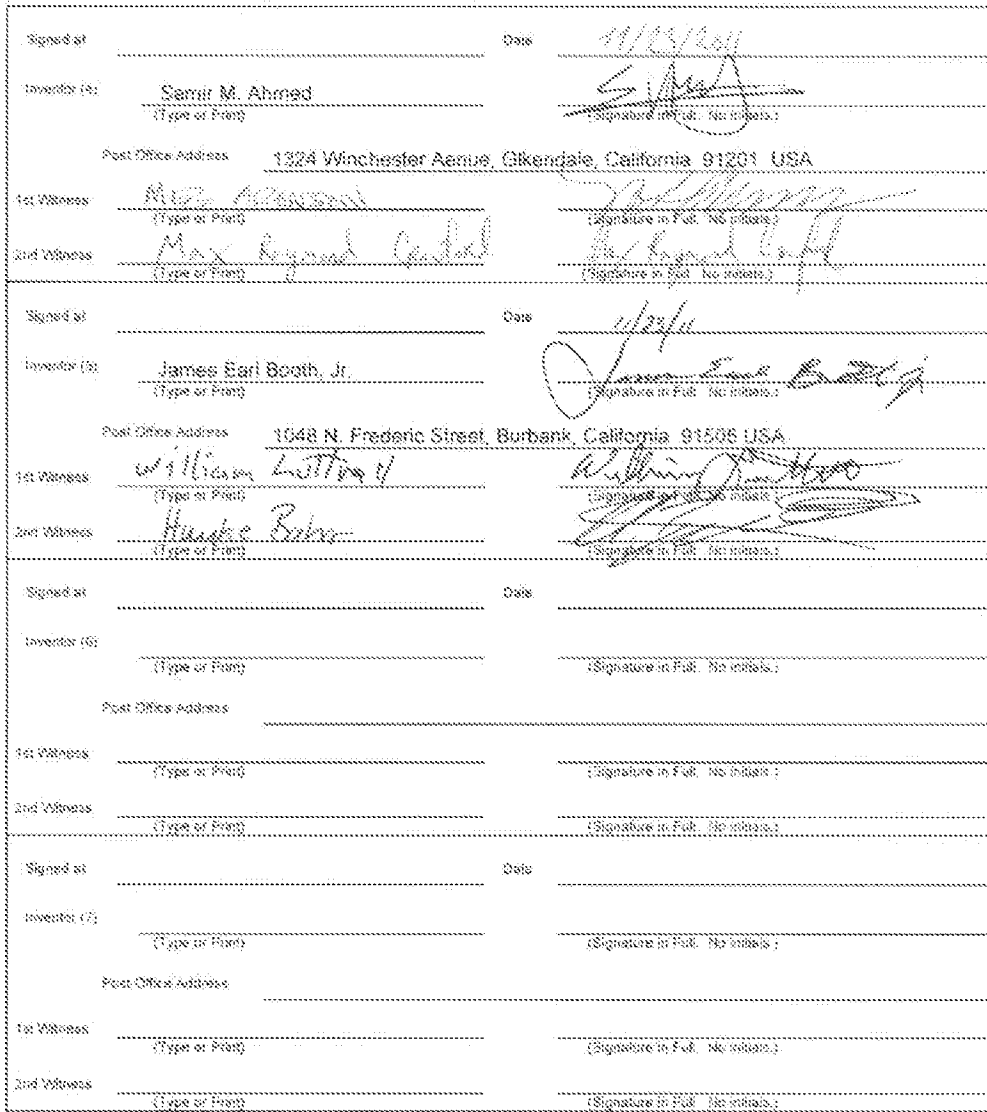 Signed at Date 11/23/2011
Inventor (4) Samir M. Ahmed
(Type or Print) (Signature in Full. No initials.)
Post Office Address 1324 Winchester Aenue, Glkendale, California 91201 USA
1st Witness
(Type or Print) (Signature in Full. No initials.)
2nd Witness Max Raymond
(Type or Print) (Signature in Full. No initials.)
Signed at Date 11/23/11
Inventor (5) James Earl Booth, Jr. James Earl Booth Jr
(Type or Print) (Signature in Full. No initials.)
Post Office Address 1048 N. Frederic Street, Burbank, California 91505 USA
1st Witness William
(Type or Print) (Signature in Full. No initials.)
2nd Witness
(Type or Print) (Signature in Full. No initials.)
Signed at Date
Inventor (6)
(Type or Print) (Signature in Full. No initials.)
Post Office Address
1st Witness
(Type or Print) (Signature in Full. No initials.)
2nd Witness
(Type or Print) (Signature in Full. No initials.)
Signed at Date
Inventor (7)
(Type or Print) (Signature in Full. No initials.)
Post Office Address
1st Witness
(Type or Print) (Signature in Full. No initials.)
2nd Witness
(Type or Print) (Signature in Full. No initials.)